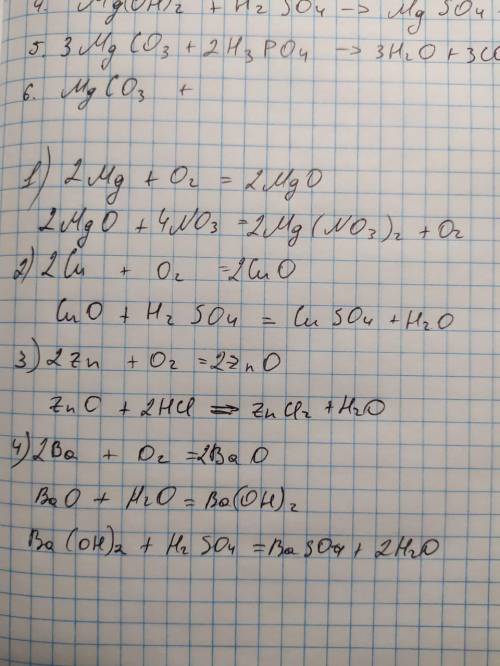 4. Mg(OH)2 + H2SO4 -> MgSO4
5. 3MgCO3 + 2H3PO4 -> 3H2O + 3CO
6. MgCO3 +
1) 2Mg + O2 = 2MgO
2MgO + 4NO3 = 2Mg(NO3)2 + O2
2) 2Cu + O2 = 2CuO
CuO + H2SO4 = CuSO4 + H2O
3) 2Zn + O2 = 2ZnO
ZnO + 2HCl = ZnCl2 + H2O
4) 2Ba + O2 = 2BaO
BaO + H2O = Ba(OH)2
Ba(OH)2 + H2SO4 = BaSO4 + 2H2O